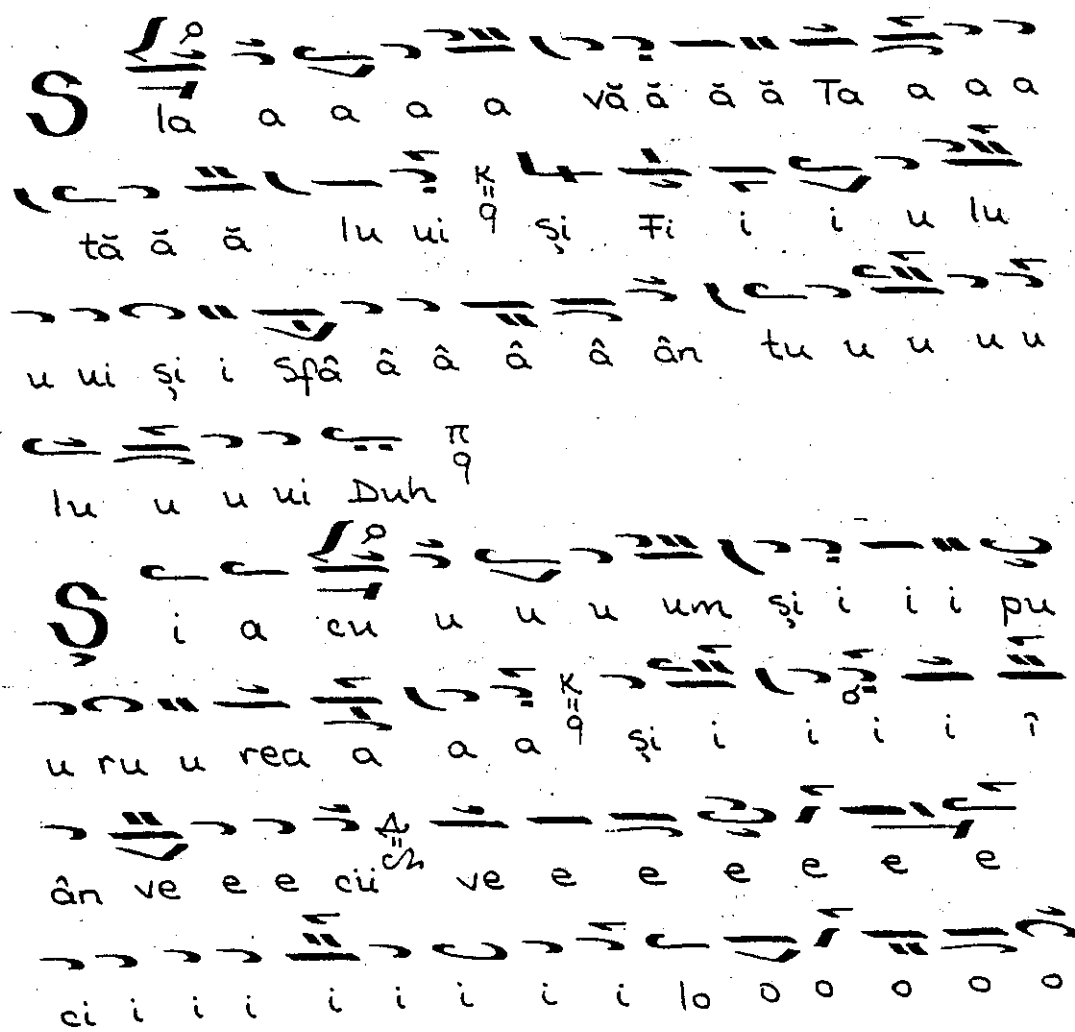 S la a a a a vă ă ă ă Ta a a a
tă ă ă lu ui κ q și Fi i i u lu
u ui și i Sfâ â â â â ân tu u u u u
lu u u ui Duh π q
Ș i a cu u u u um și i i i pu
u ru u rea a a a κ q și i i i i î
ân ve e e cii Δ ve e e e e e e
ci i i i i i i i i lo o o o o o